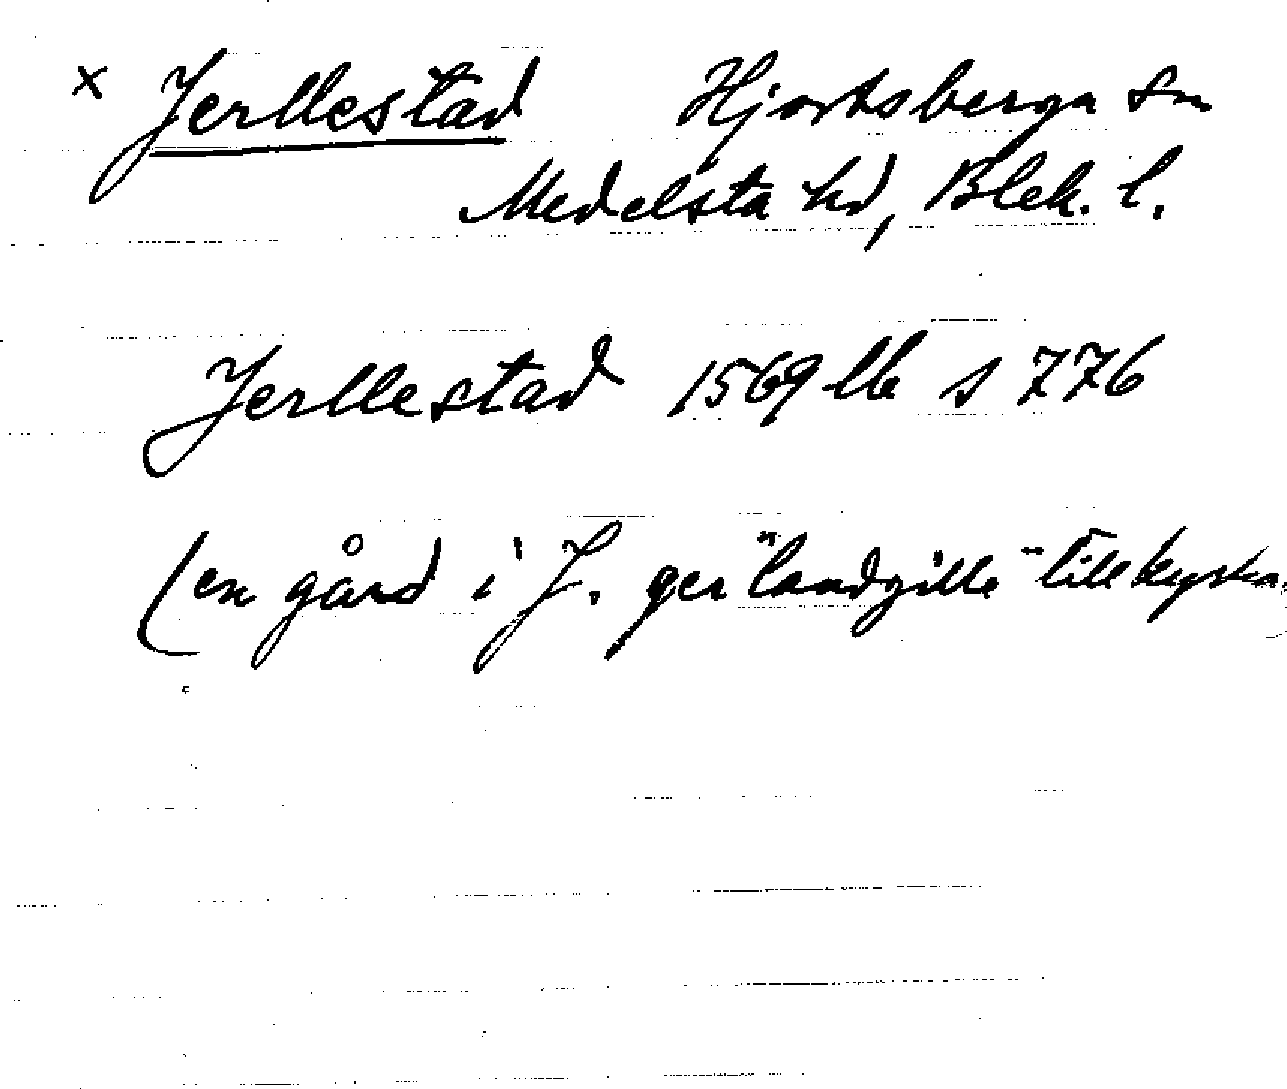 x Jerllestad Hjortsberga sn
Medelsta hd, Blek. l.
Jerllestad 1569 lb s 776
(en gård i J. ger "landgille" till kyrkan,